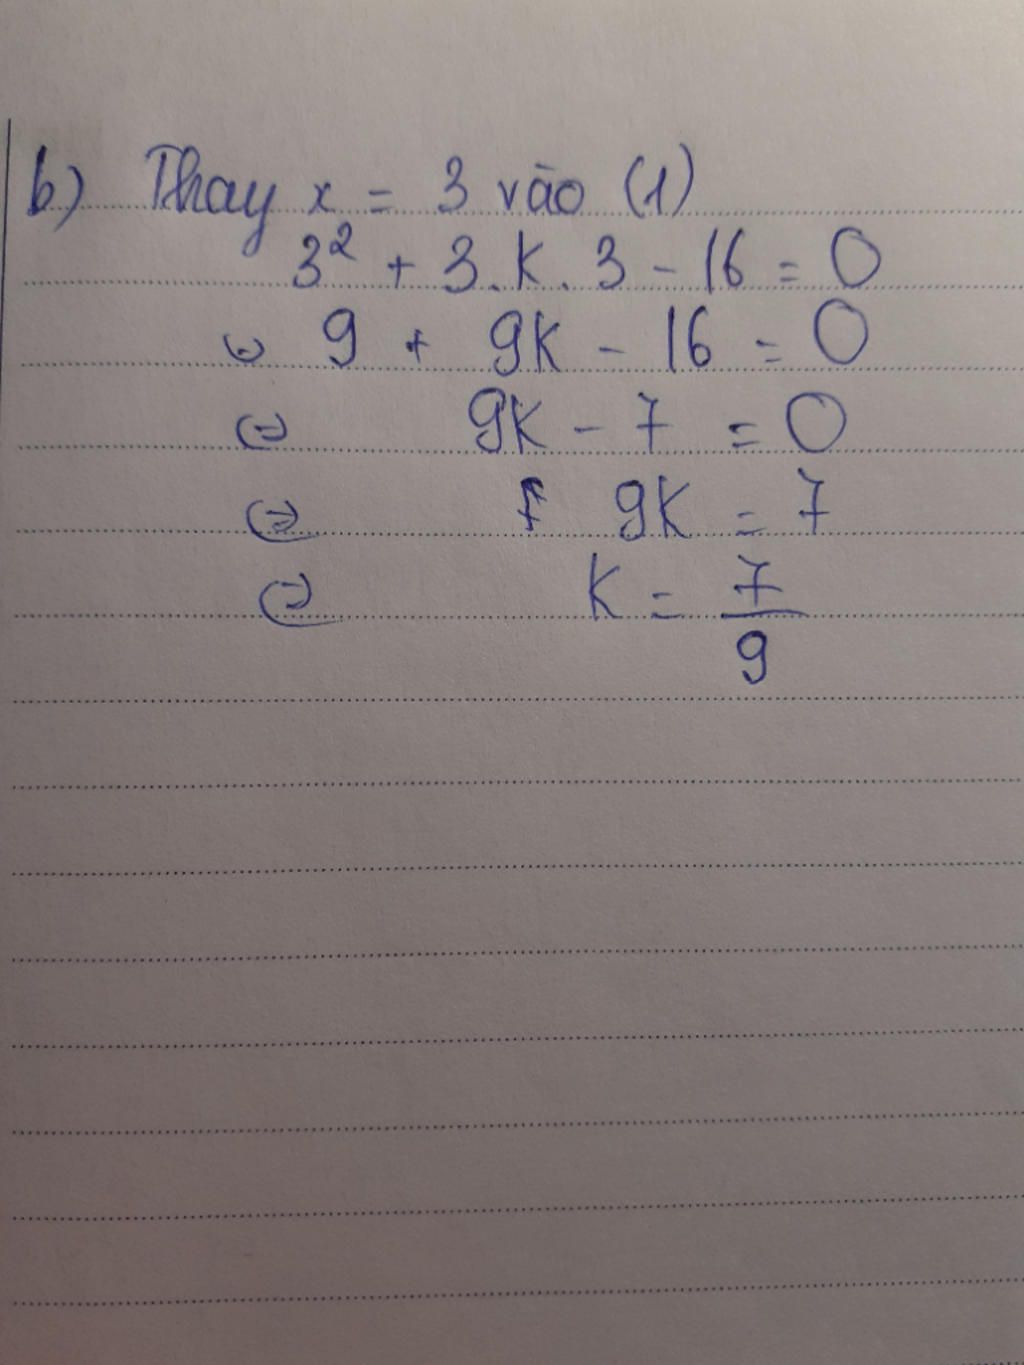 b) Thay x = 3 vào (1)
3² + 3.K.3 - 16 = 0
⇔ 9 + 9K - 16 = 0
⇔ 9K - 7 = 0
⇔ 9K = 7
⇔ K = 7/9